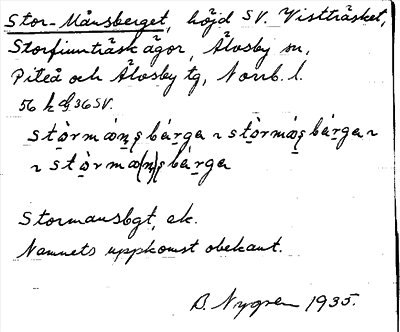 Stor-Månsberget, höjd SV. Vistträsket,
Storfinnträsk ägor, Älvsby sn,
Piteå och Älvsby tg, Norrb. l.
56 k d, 36 SV.
stòrmån̥sbárga ~ stòrmåsbárga ~
~ stòrma(n)sbárga
Stormansbgt, ek.
Namnets uppkomst obekant.
B. Nygren 1935.